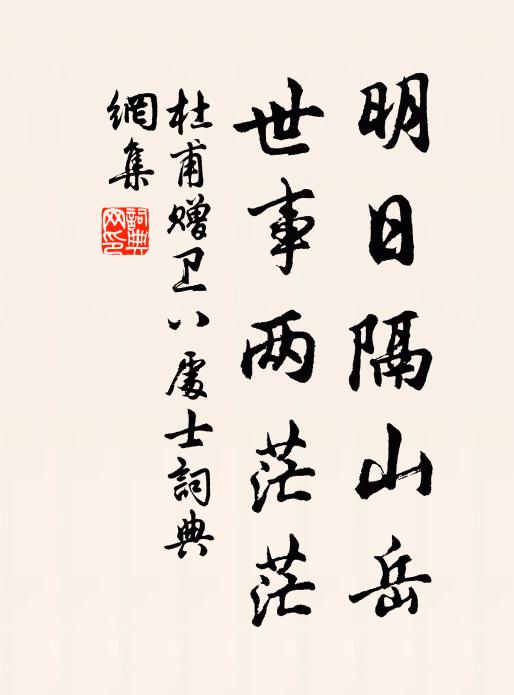 明日隔山岳
世事两茫茫
杜甫赠卫八處士詞典
網集
詞典网印